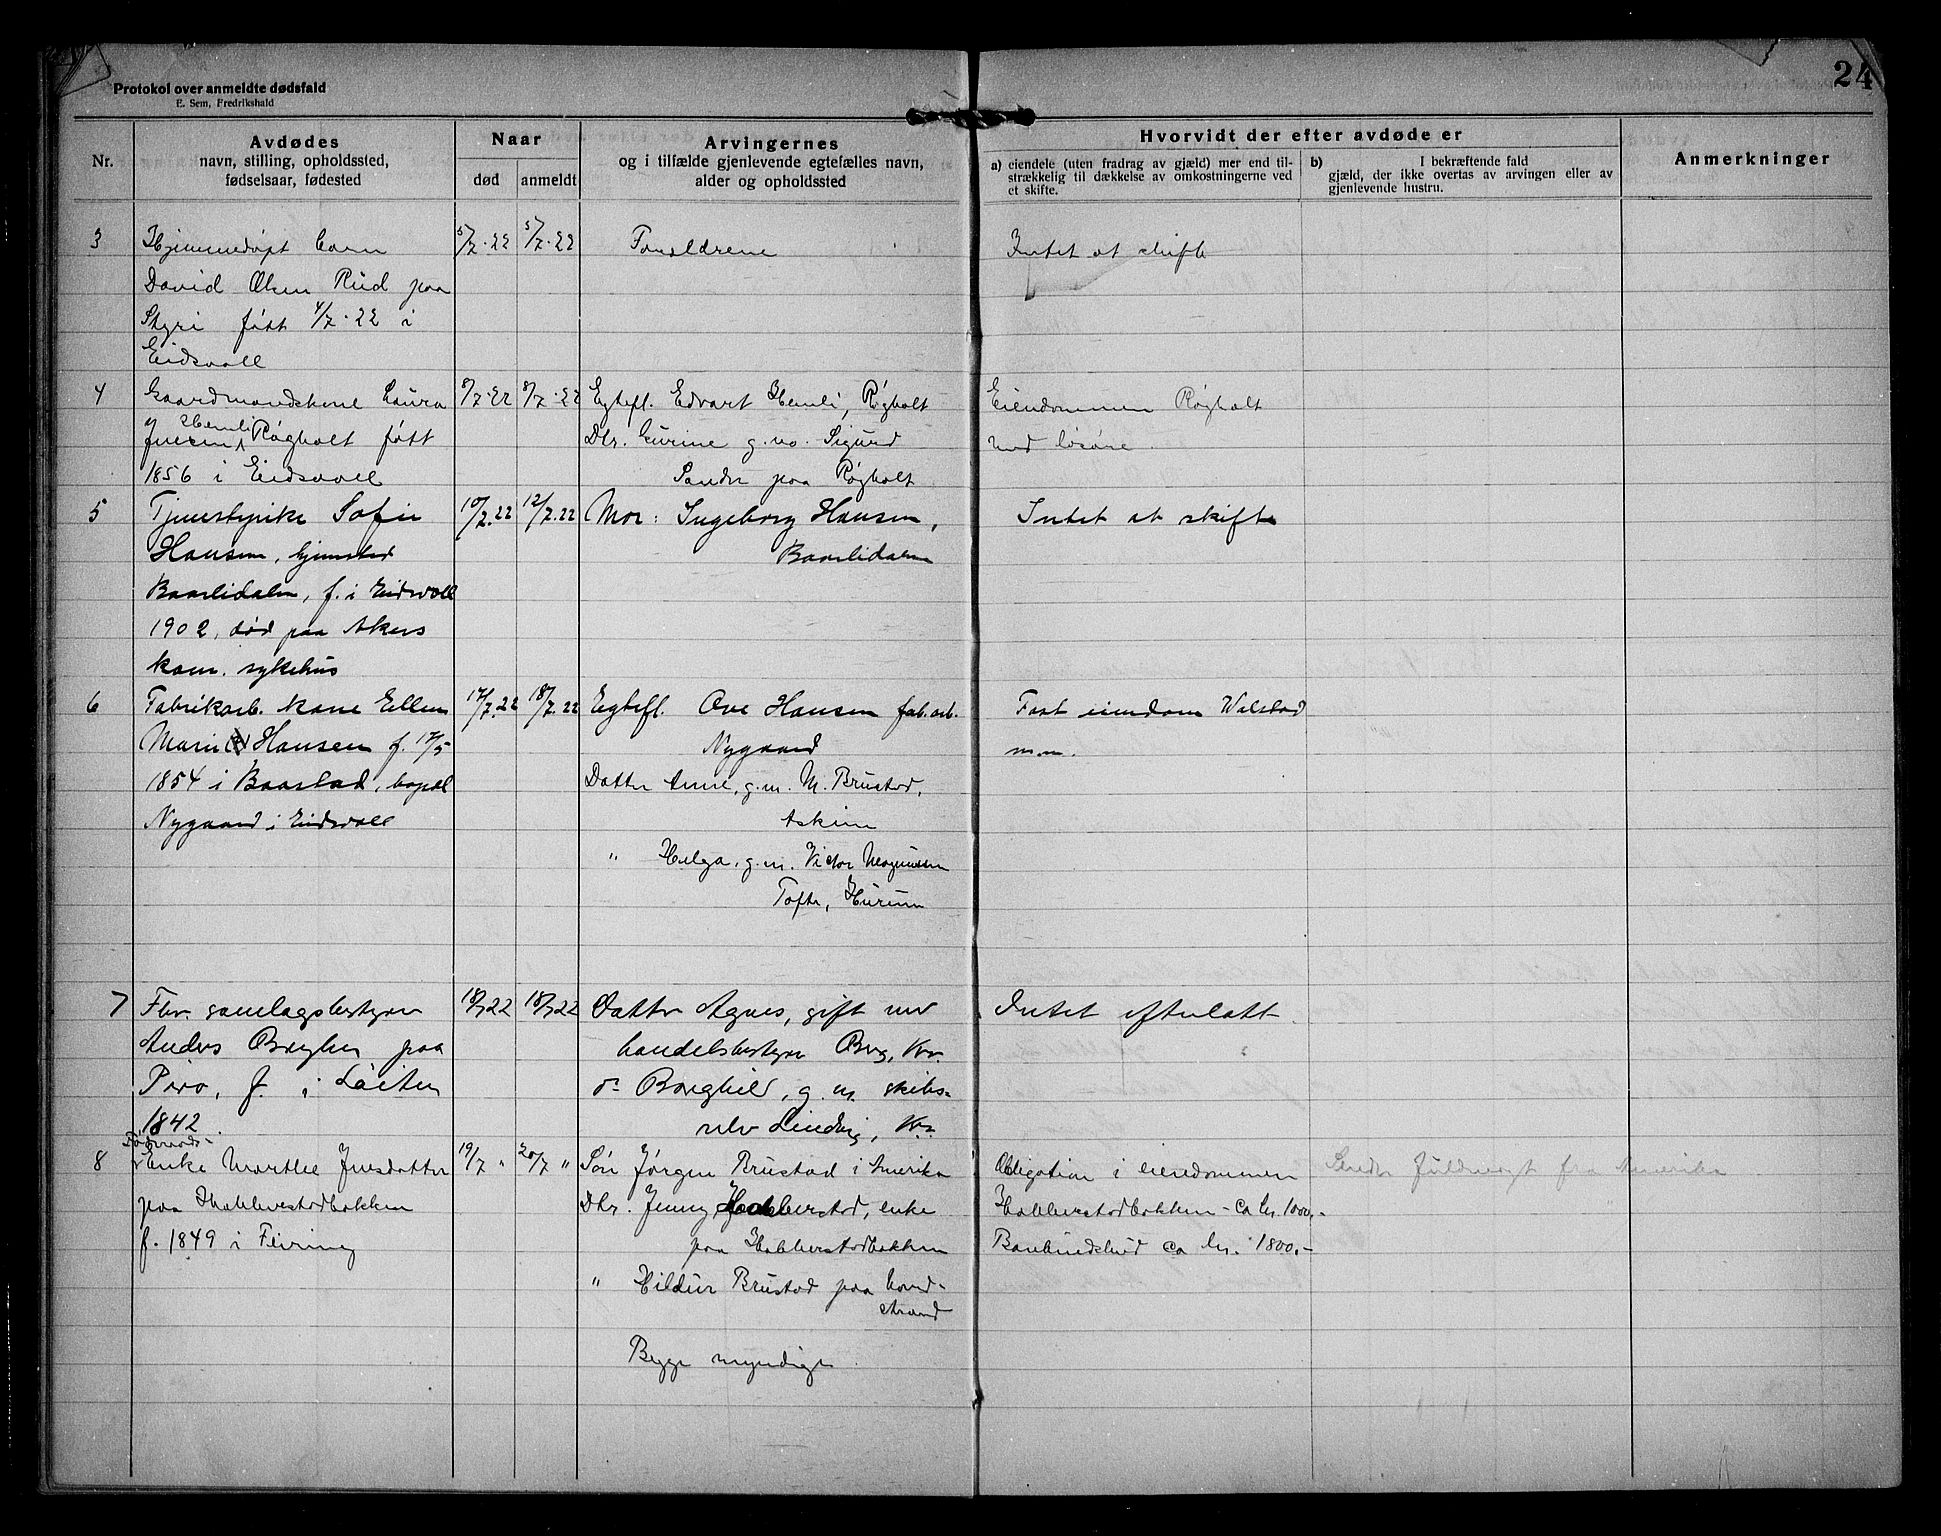 24
Protokol over anmeldte dødsfald
E. Sem, Fredrikshald
Nr.
Avdødes
navn, stilling, opholdssted,
fødselsaar, fødested
Naar
død
anmeldt
Arvingernes
og i tilfælde gjenlevende egtefælles navn,
alder og opholdssted
Hvorvidt der efter avdøde er
a) eiendele (uten fradrag av gjæld) mer end til-
strækkelig til dækkelse av omkostningerne ved
et skifte.
b) I bekræftende fald
gjæld, der ikke overtas av arvingen eller av
gjenlevende hustru.
Anmerkninger
3
Hjemmedøpt barn
David Olsen Rud paa
Styri født 4/7.22 i
Eidsvoll
5/7.22
5/7.22
Forældrene
Intet at skifte
4
Gaardmandskone Laura
Jensen Hemli Røgholt født
1856 i Eidsvoll
8/7.22
8/7.22
Egtefl. Edvart Hemli, Røgholt
Dtr. Gurine g. m. Sigurd
Sander paa Røgholt
Eiendommen Røgholt
med løsøre.
5
Tjenestepike Sofie
Hansen, hjemsted
Baarlidalen, f. i Eidsvoll
1902, død paa Akers
kom. sykehus
10/7.22
12/7.22
Mor: Ingeborg Hansen,
Baarlidalen
Intet at skifte
6
Fabrikarb. kone Ellen
Marie Hansen f. 17/5
1854 i Baastad, bopæl
Nygaard i Eidsvoll
17/7.22
18/7.22
Egtefl. Ove Hansen fab.arb.
Nygaard
Datter Anne, g.m. M. Brustad,
Askim
" Helga, g.m. Victor Magnussen
Tofte, Hurum
Fast eiendom Walstad
m.m.
7
Fhv. samlagsbestyrer
Anders Bryhn paa
Piro, f. i Løiten
1842.
18/7 22
18/7 22
Datter Agnes, gift med
handelsbestyrer Berg, Kr.
d= Borghild, g. m. skibs=
Lindvig, Kr.
Intet efterlatt.
8
Enke Marthe Jensdatter
paa Habberstadbakken
f. 1849 i Feiring
19/7 "
20/7 "
Søn Jørgen Brustad i Amerika
Dtr. Jenny Habberstad, enke
paa Habberstadbakken
" Hildur Brustad paa
strand
Begge myndige
Obligation i eiendommen
Habberstadbakken - ca kr. 1000,-
Bankindskud ca kr. 1800,-
Sender fuldmagt fra Amerika